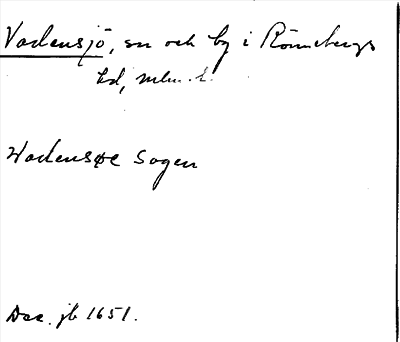 Vadensjö, sn och by i Rönnebergs
hd, mlm. l.
Wadensøe Sogen
Dec. jb 1651.